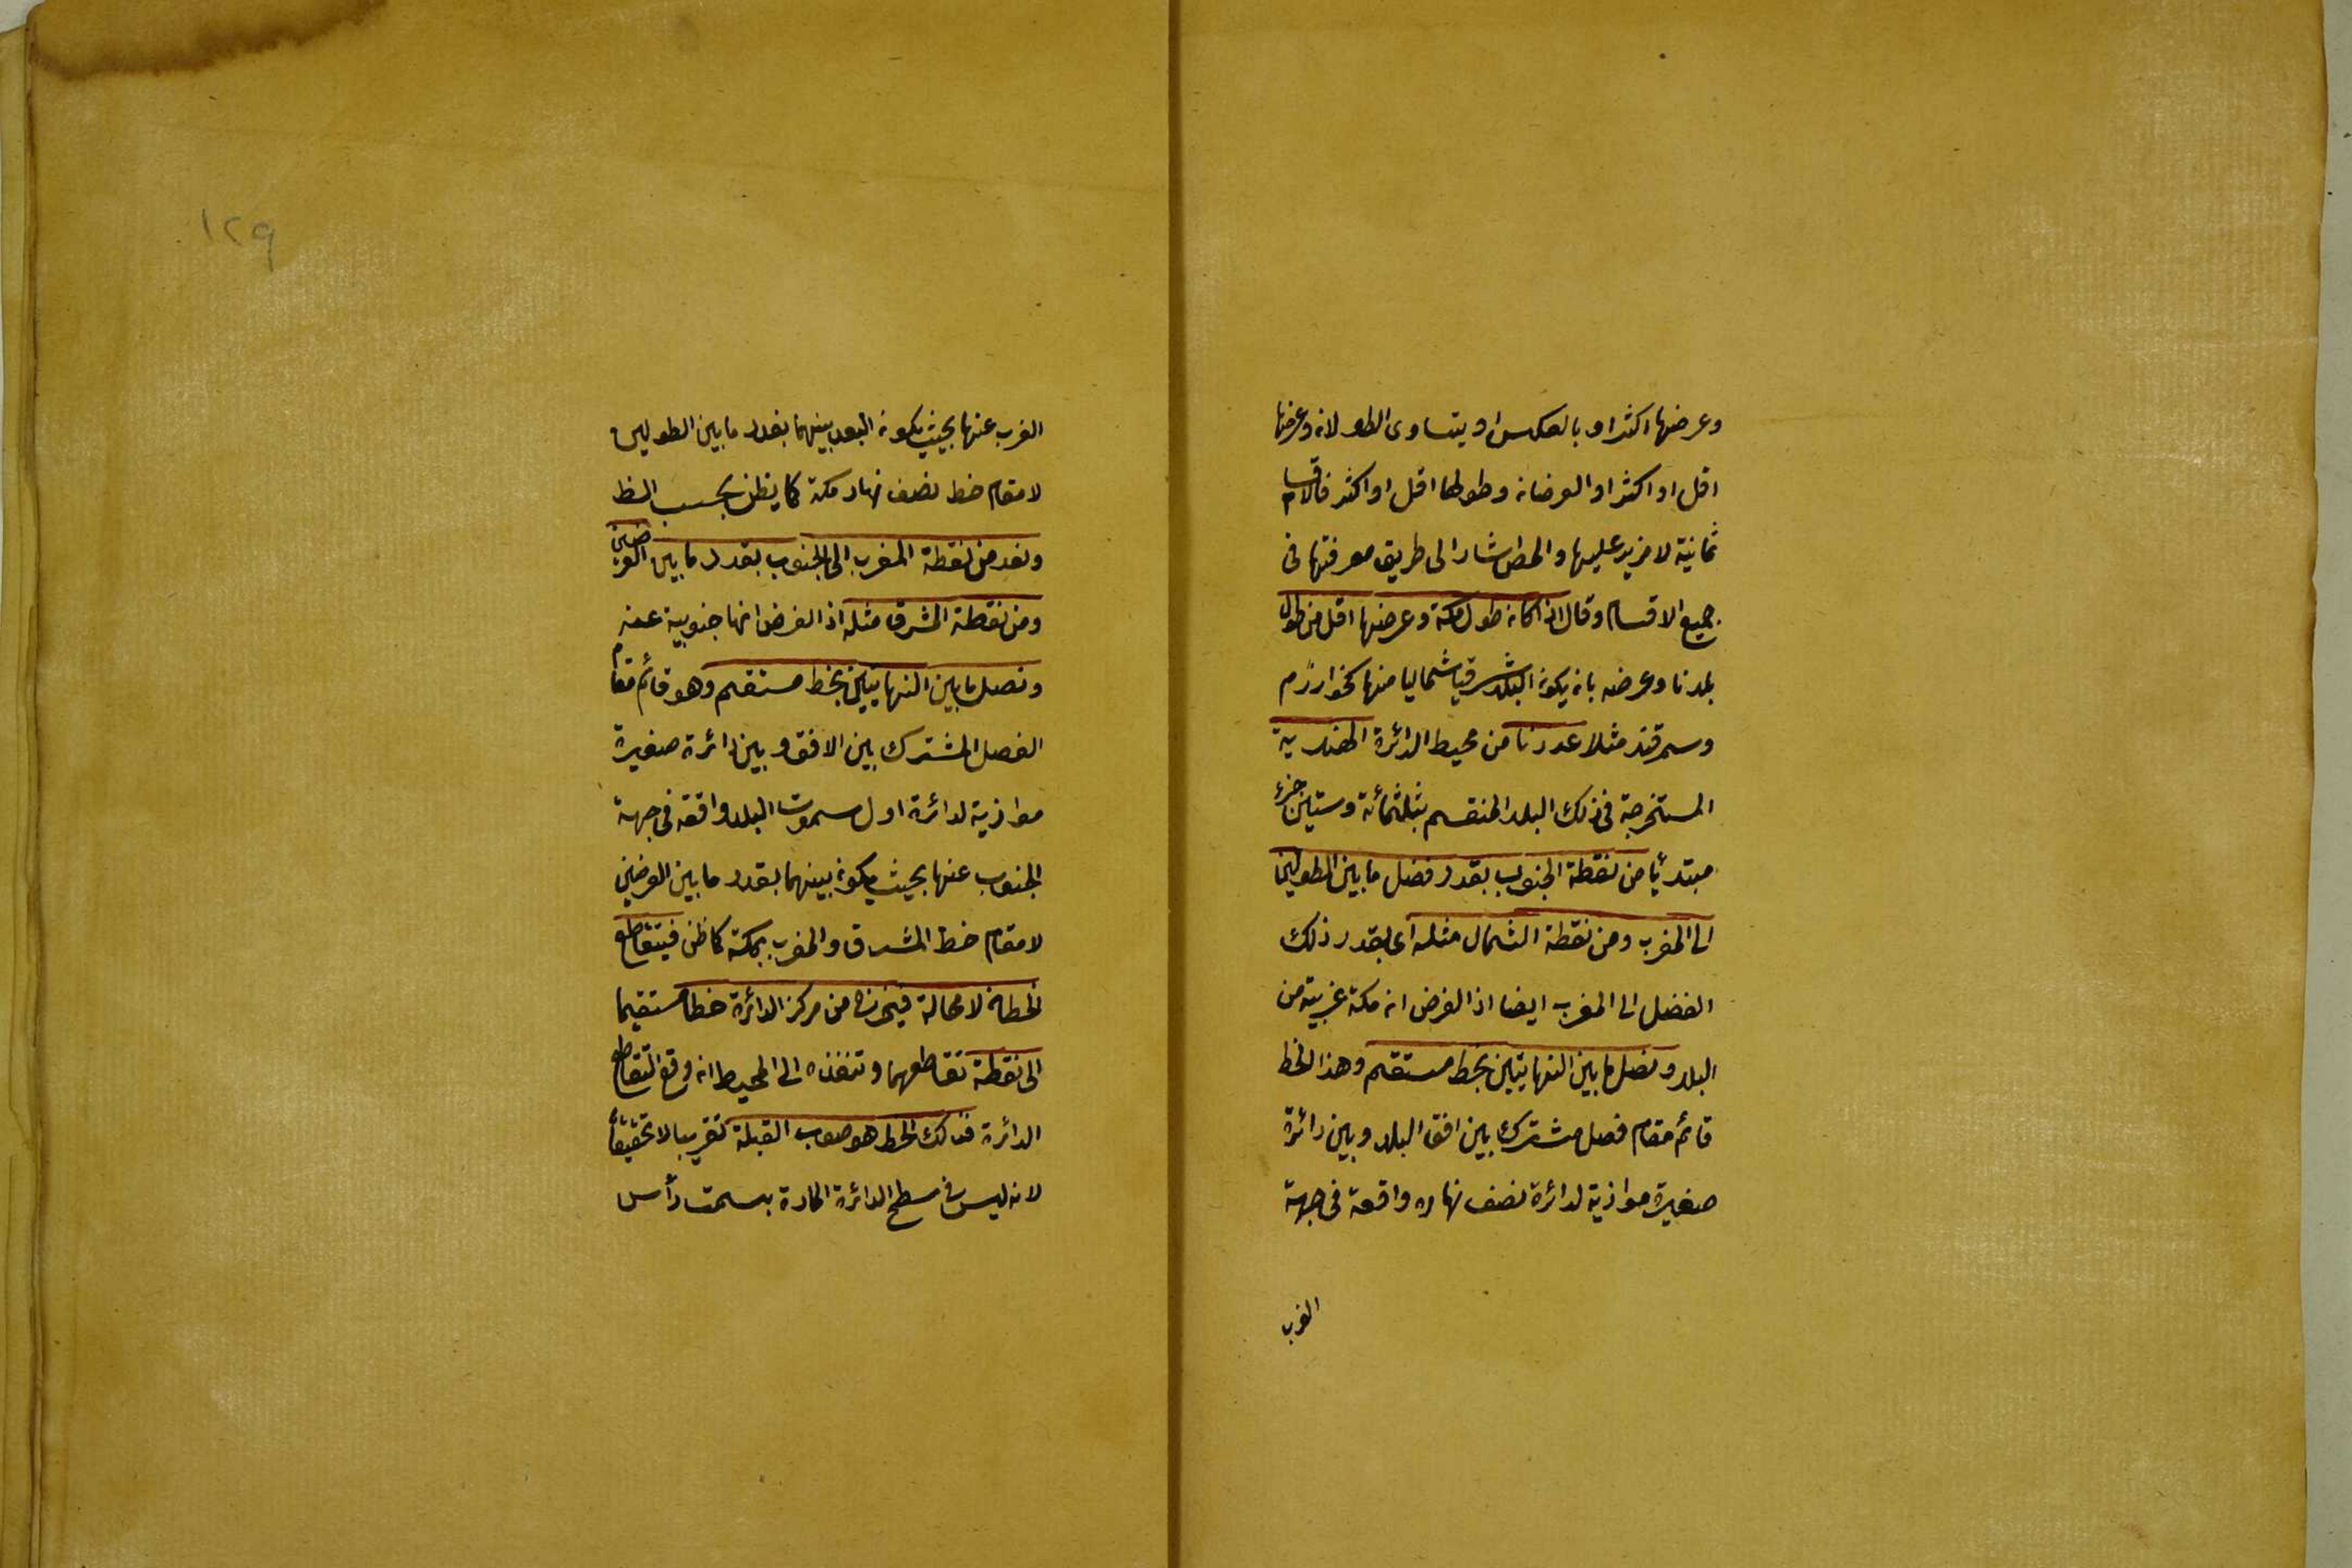 وعرضها اكثر او بالعكس او يتساوى الطولان وعرضها
اقل او اكثر او العرضان وطولها اقل او اكثر فالاقسام
ثمانية لا مزيد عليها والمص اشار الى طريق معرفتها فى
جميع الاقسام وقال اذا كان طول مكة وعرضها اقل من طول
بلدنا وعرضه بان يكون البلد شرقيا شماليا منها كخوارزم
وسمرقند مثلا عددنا من محيط الدائرة الهندية
المستخرجة فى ذلك البلد المنقسم بثلثمائة وستين جزء
مبتدئا من نقطة الجنوب بقدر فضل ما بين الطولين
الى المغرب ومن نقطة الشمال مثله اى بقدر ذلك
الفضل الى المغرب ايضا اذ الفرض ان مكة غربية من
البلد ونصل ما بين النهايتين بخط مستقيم وهذا الخط
قائم مقام فصل مشترك بين افق البلد وبين دائرة
صغيرة موازية لدائرة نصف نهاره واقعة فى جهة
الغرب
١٢٩
الغرب عنها بحيث يكون البعد بينهما بقدر ما بين الطولين
لا مقام خط نصف نهار مكة كما يظن بحسب الظ
ونعد من نقطة المغرب الى الجنوب بقدر ما بين العرضين
ومن نقطة المشرق مثله اذ الفرض انها جنوبية عنه
ونصل ما بين النهايتين بخط مستقيم وهو قائم مقام
الفصل المشترك بين الافق وبين دائرة صغيرة
موازية لدائرة اول سموت البلد واقعة فى جهة
الجنوب عنها بحيث يكون بينهما بقدر ما بين العرضين
لا مقام خط المشرق والمغرب بمكة كما ظن فيتقاطع
الخطان لا محالة فيخرج من مركز الدائرة خطا مستقيما
الى نقطة تقاطعهما وتنفذه الى المحيط ان وقع التقاطع
الدائرة فذلك الخط هو صوب القبلة تقريبا لا تحقيقا
لانه ليس فى سطح الدائرة المارة بسمت رأس